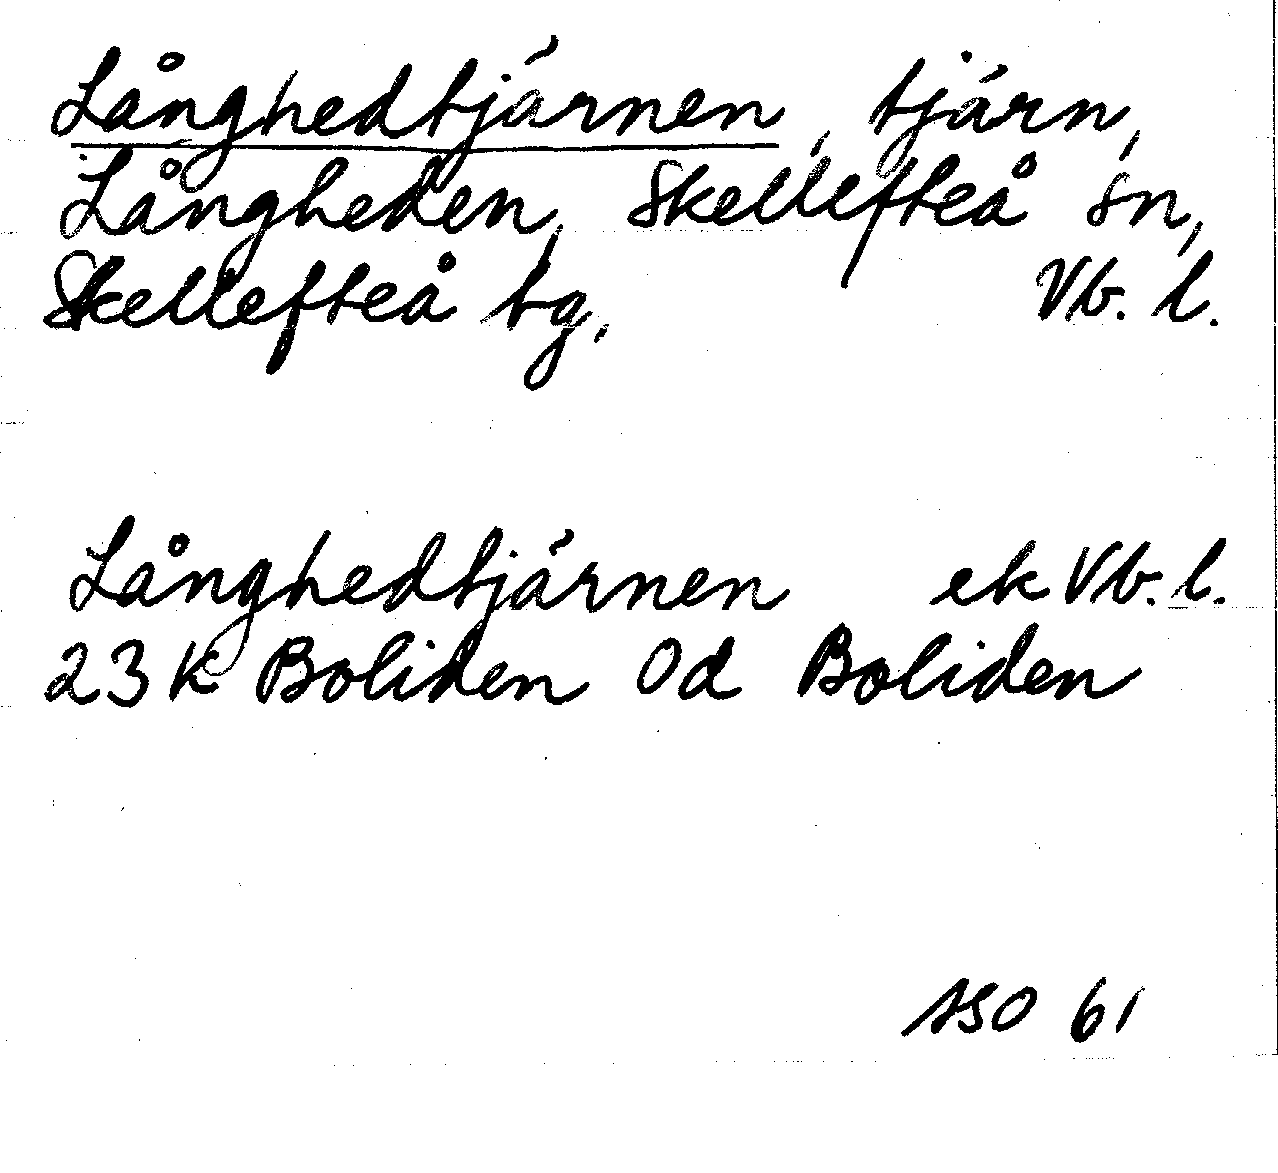 Långhedtjärnen, tjärn,
Långheden, Skellefteå sn,
Skellefteå tg, Vb. l.
Långhedtjärnen ek Vb. l.
23 K Boliden Od Boliden
ASO 61